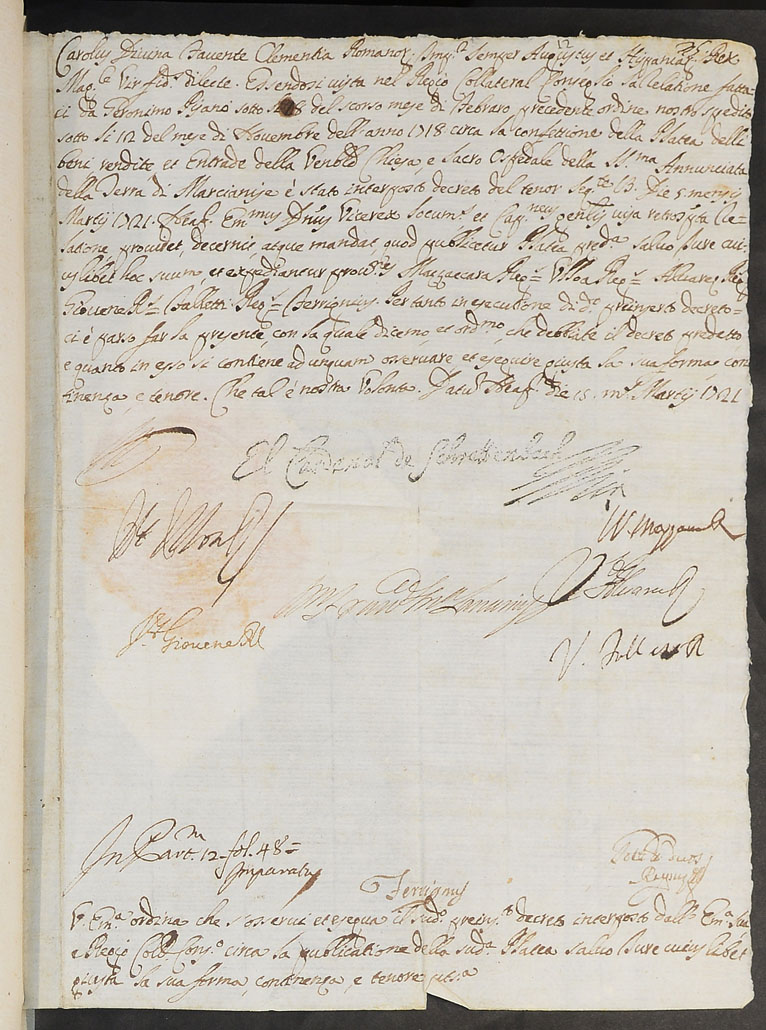 Carolus Divina Favente Clementia Romanor. Imp.r Semper Augustus et Hispaniar. Rex
Mag.ce Vir fid.s dilecte. Essendosi vista nel Regio Collateral Conseglio la relatione fatta
ci da Geronimo sotto li 18 del scorso mese di Febraro precedente ordine nostro spedito
sotto li 12 del mese di Novembre dell'anno 1718 circa la confettione della Platea delli
beni rendite et Entrade della Venble Chiesa, e Sacro Ospedale della SS.ma Annunciata
della Terra di Marcianise è stato interposto decreto del tenor seq.te V3. Die 5 mensis
Martij 1721. Neap. Em.mus Dnus Vicerex locum. et Cap.neus gen.lis visa retroscripta Re=
latione providet, decernit, atque mandat quod publicetur Platea pred.a salvo Jure cui-
uslibet hoc suum, et expediantur prov.nes Mazzaccara Reg.s Ulloa Reg.s Alvarez Reg.s
Giovene R.s Falletti Reg.s Ferrignius. Per tanto in esecutione di d.o preinserto decreto=
ci è parso far la presente, con la quale dicemo, et ord.mo, che debbiate il decreto predetto
e quanto in esso si contiene ad unguem osservare et eseguire giusta la sua forma, con
tinenza, e tenore. Che tal è nostra Volontà. Datum Neap. die 15 m.s Martij 1721
El Cardenal de Schrattembach
V.t Ulloa R.
V.t Mazzacara R.
V.t Alvarez R.
V.t Giovene R.
V. Falletti R.
In Part.m 12 fol. 48=
Imparatus
Ferrignus
V. Em.a ordina che s'osservi et esegua il sud.o preins.to decreto interposto dall' Em.a Sua
e Regio Coll. Cons.o circa la publicatione della sud.a Platea salvo Jure cuiuslibet
giusta la sua forma, continenza, e tenore ut s.a